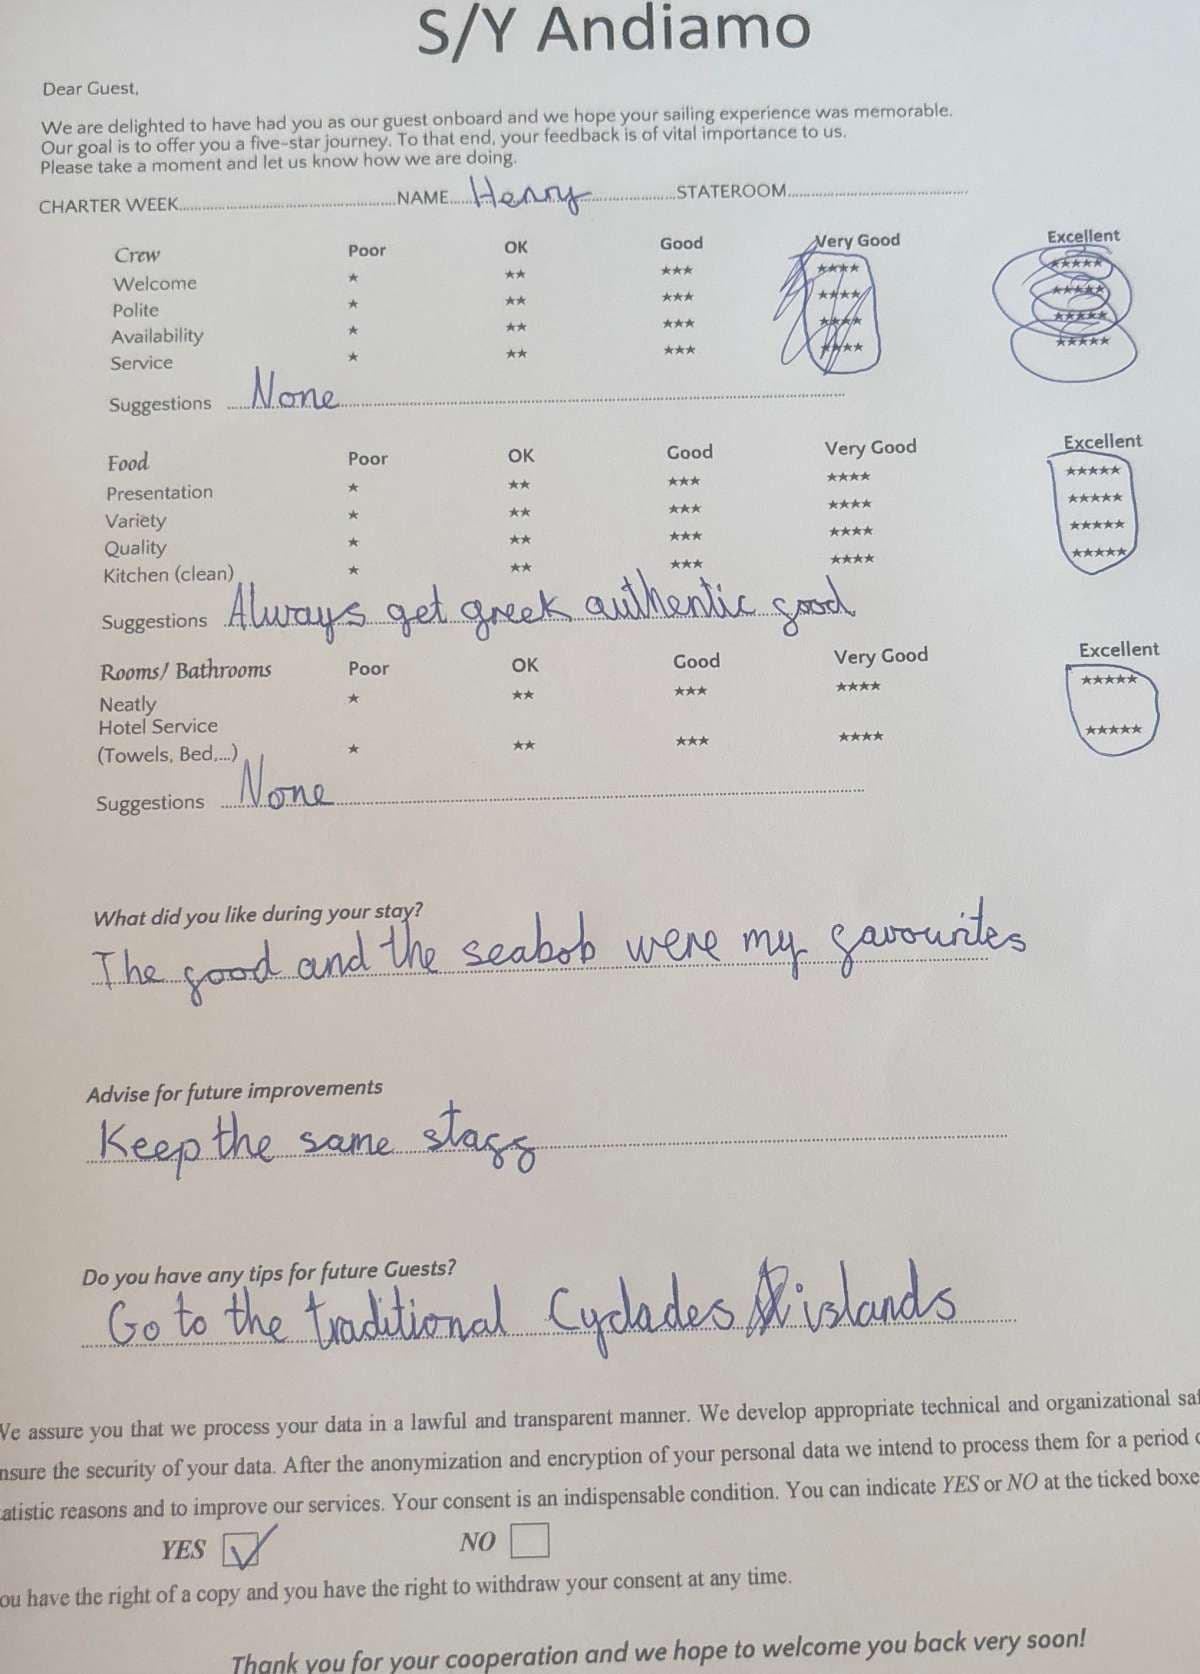 S/Y Andiamo
Dear Guest,
We are delighted to have had you as our guest onboard and we hope your sailing experience was memorable.
Our goal is to offer you a five-star journey. To that end, your feedback is of vital importance to us.
Please take a moment and let us know how we are doing.
CHARTER WEEK NAME Henry STATEROOM
Crew Poor OK Good Very Good Excellent
Welcome ★ ★★ ★★★ ★★★★ ★★★★★
Polite ★ ★★ ★★★ ★★★★ ★★★★★
Availability ★ ★★ ★★★ ★★★★ ★★★★★
Service ★ ★★ ★★★ ★★★★ ★★★★★
Suggestions None
Food Poor OK Good Very Good Excellent
Presentation ★ ★★ ★★★ ★★★★ ★★★★★
Variety ★ ★★ ★★★ ★★★★ ★★★★★
Quality ★ ★★ ★★★ ★★★★ ★★★★★
Kitchen (clean) ★ ★★ ★★★ ★★★★ ★★★★★
Suggestions Always get greek authentic food
Rooms/ Bathrooms Poor OK Good Very Good Excellent
Neatly ★ ★★ ★★★ ★★★★ ★★★★★
Hotel Service
(Towels, Bed,...) ★ ★★ ★★★ ★★★★ ★★★★★
Suggestions None
What did you like during your stay?
The food and the seabob were my favourites
Advise for future improvements
Keep the same staff
Do you have any tips for future Guests?
Go to the traditional Cyclades islands
We assure you that we process your data in a lawful and transparent manner. We develop appropriate technical and organizational
the security of your data. After the anonymization and encryption of your personal data we intend to process them for a period
reasons and to improve our services. Your consent is an indispensable condition. You can indicate YES or NO at the ticked
YES NO
have the right of a copy and you have the right to withdraw your consent at any time.
Thank you for your cooperation and we hope to welcome you back very soon!